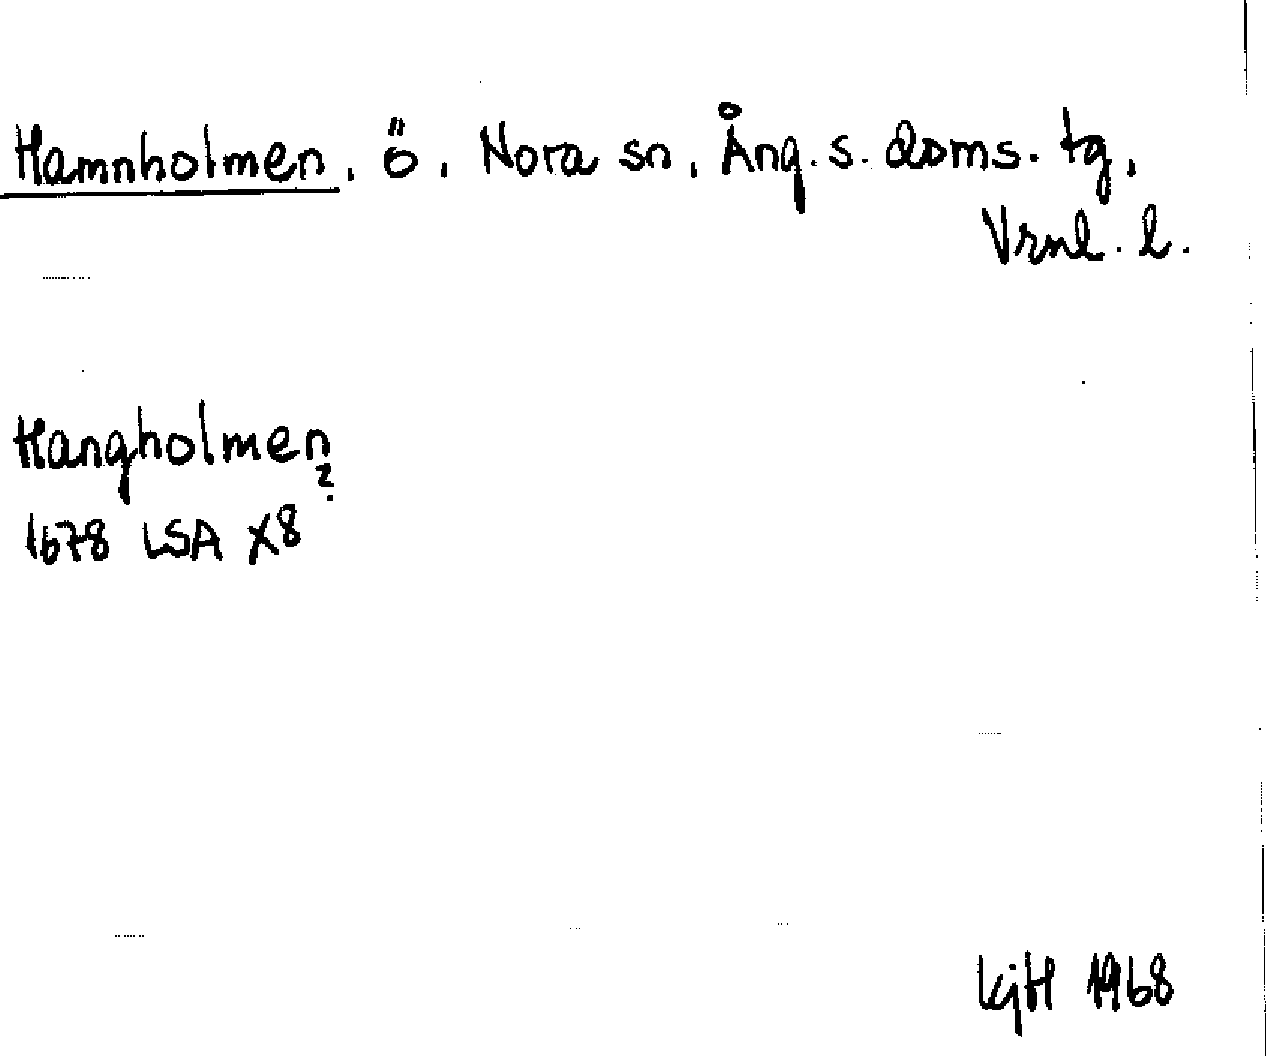 Hamnholmen, ö, Nora sn, Ång. s. doms. tg,
Vrnl. l.
Hangholmen
?
1678 LSA X8
KjH 1968